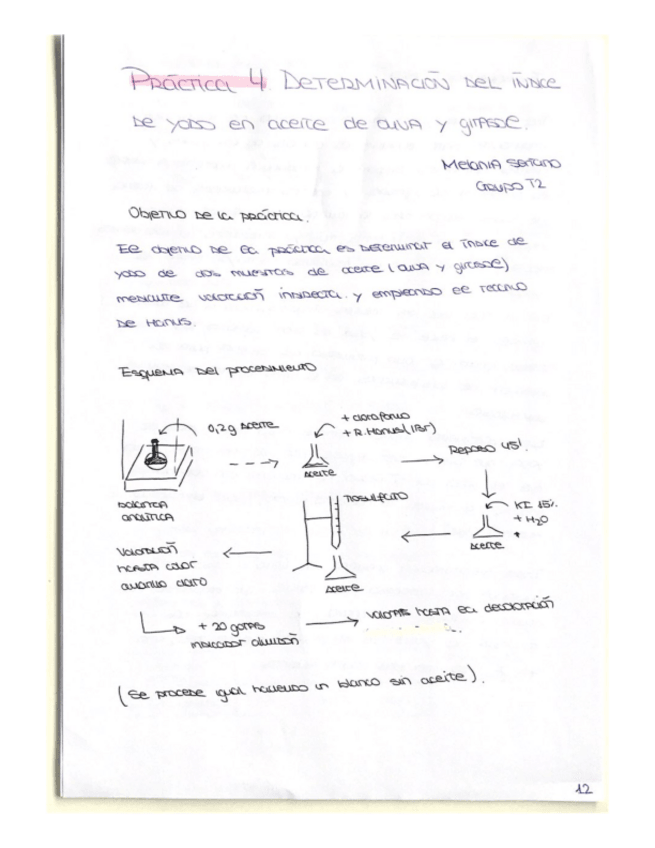 Práctica 4. Determinación del índice
de yodo en aceite de oliva y girasol.
Melania Serrano
Grupo T2
Objetivo de la práctica.
El objetivo de la práctica es determinar el índice de
yodo de dos muestras de aceite (oliva y girasol)
mediante valoración indirecta y empleando el reactivo
de Hanus.
Esquema del procedimiento
0,2g Aceite
+ cloroformo
+ R. Hanus (IBr)
Aceite
Reposo 45'.
Balanza
analítica
KI 15%
+ H2O
Aceite
Tiosulfato
Aceite
Valoración
hasta color
amarillo claro
+ 20 gotas
indicador almidón
valorar hasta decoloración
(Se procede igual haciendo un blanco sin aceite).
12